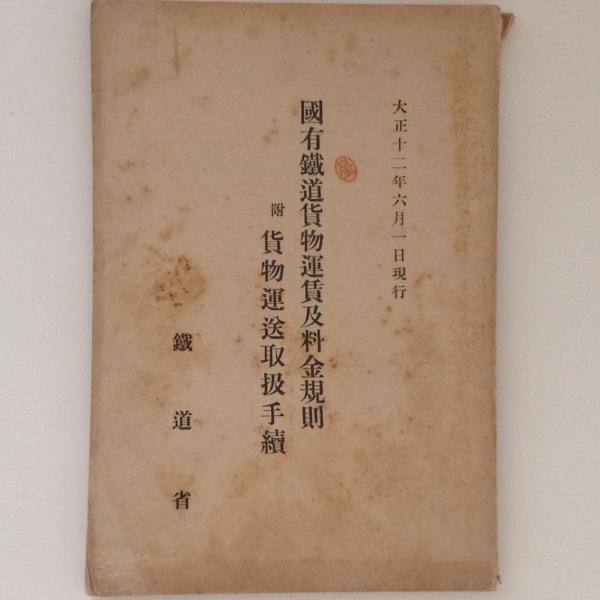 大正十二年六月一日現行
國有鐵道貨物運賃及料金規則
附 貨物運送取扱手續
鐵道省